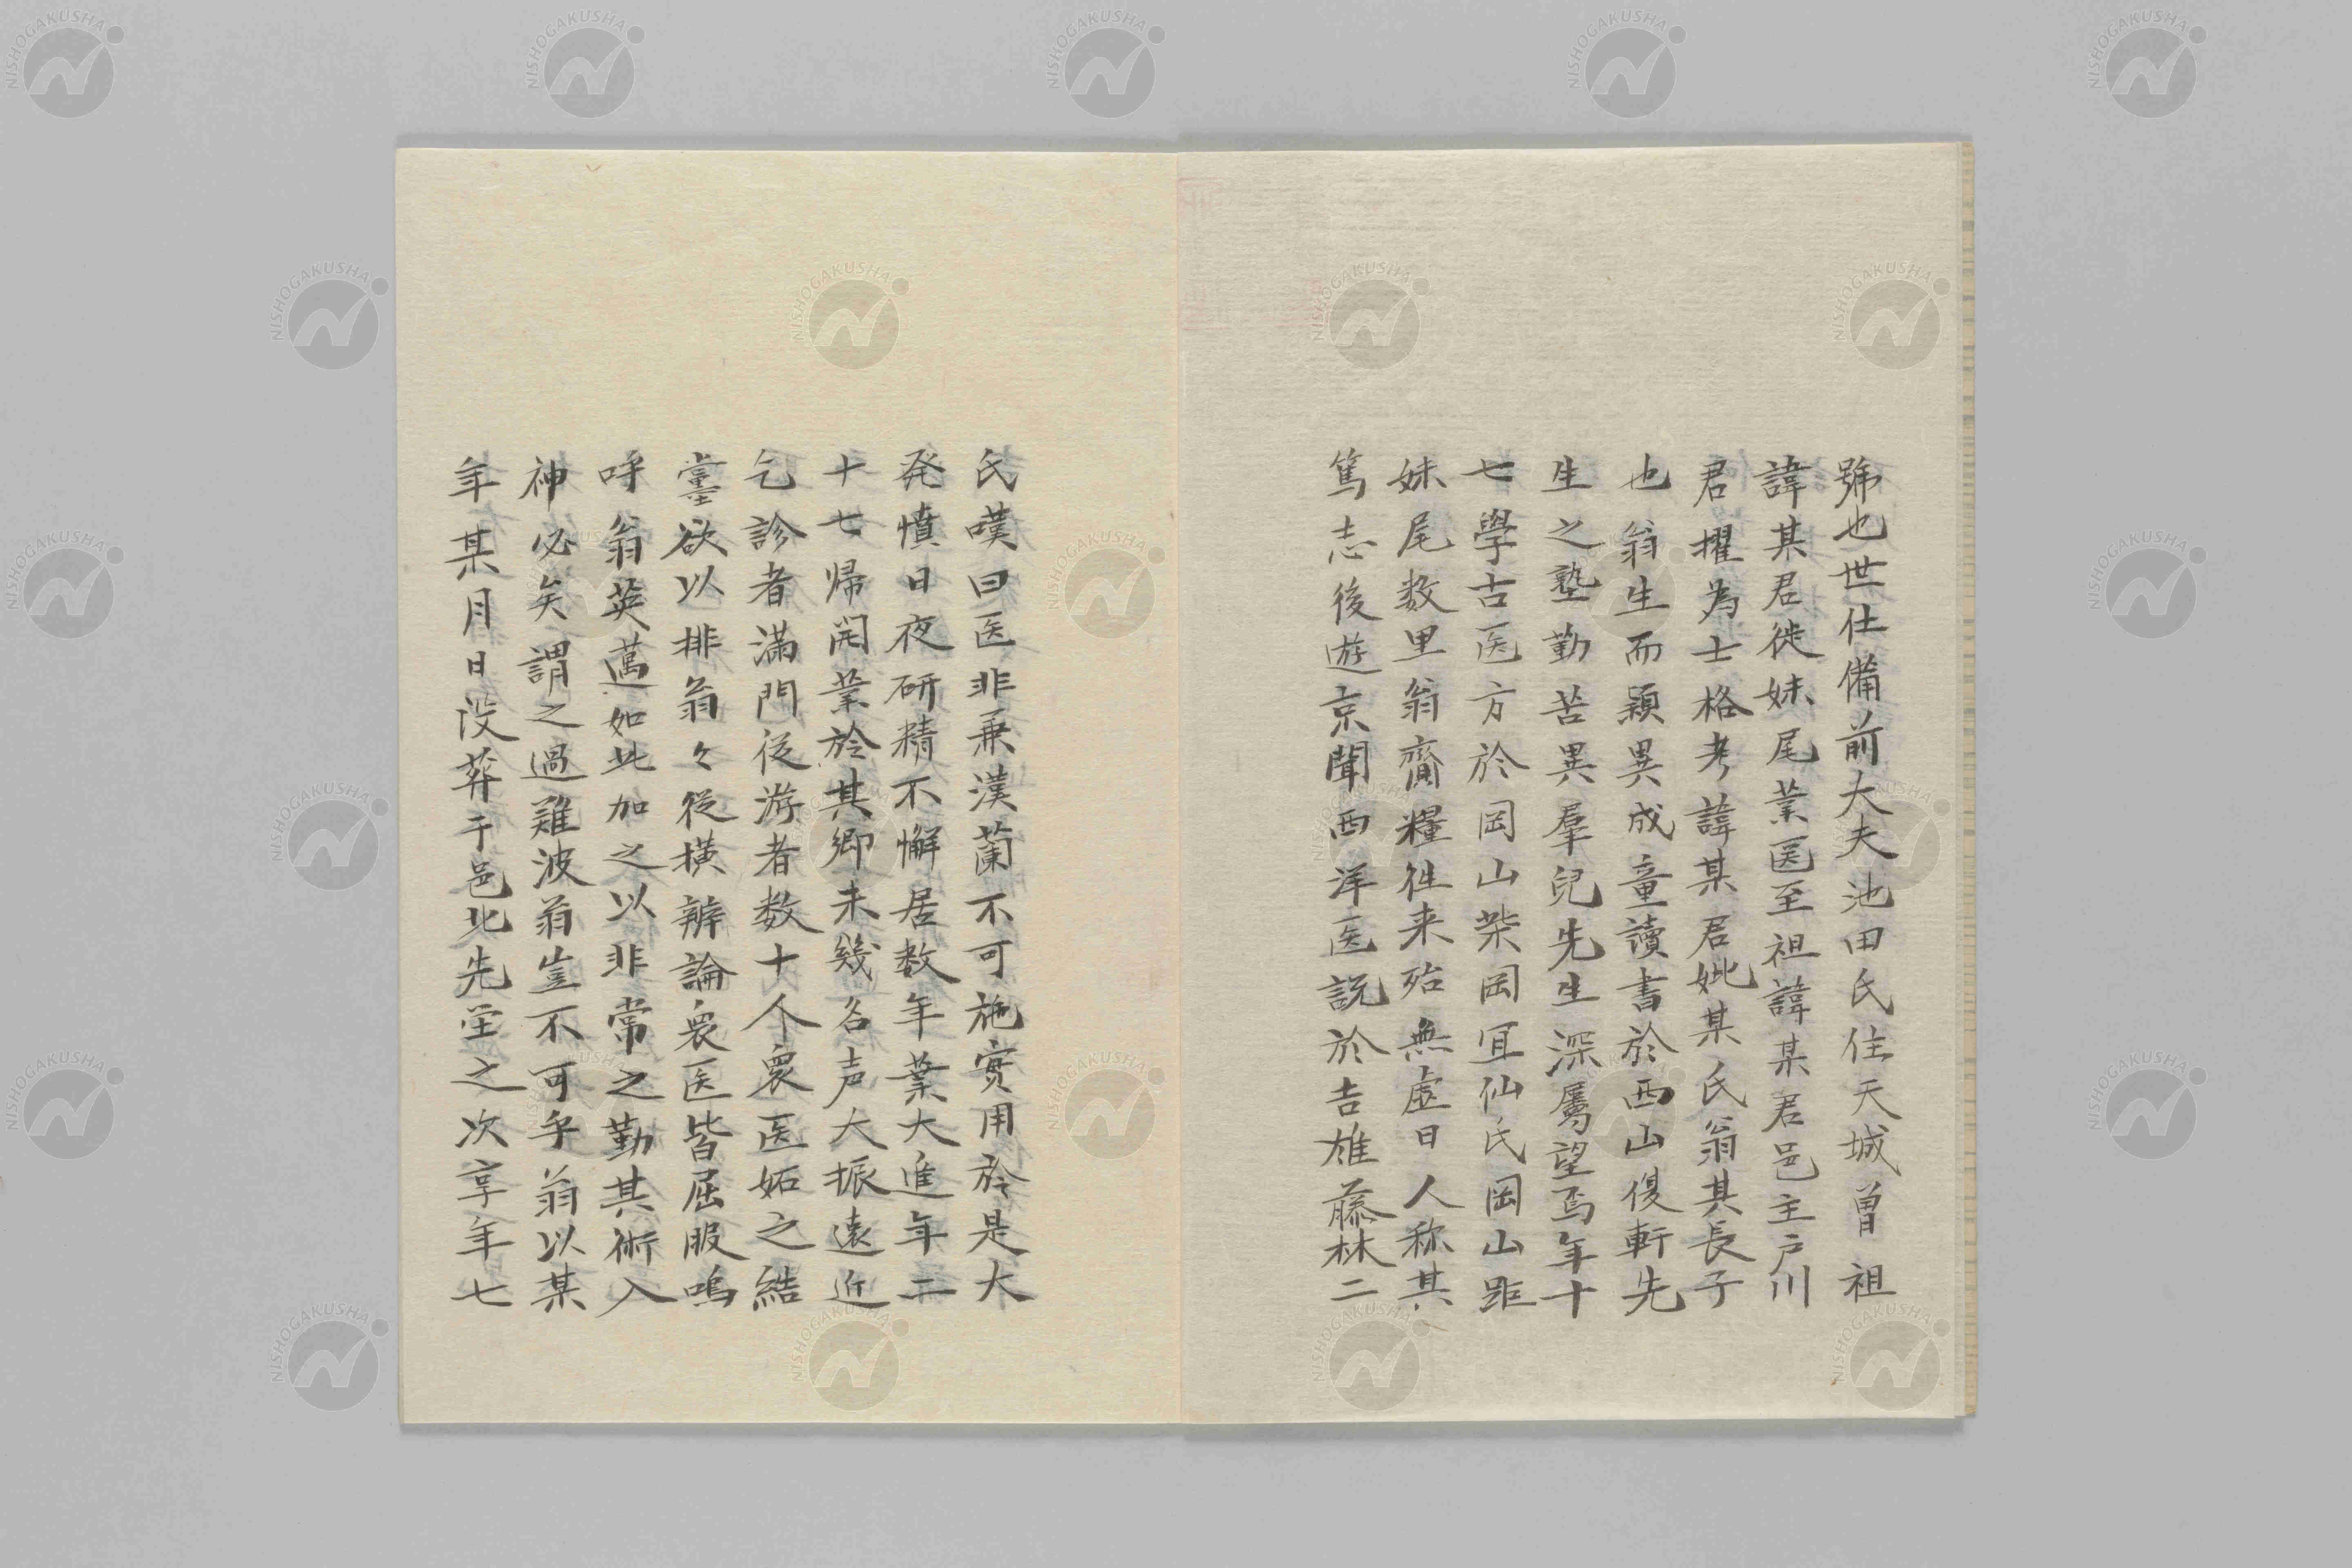 號也世仕備前大夫池田氏住天城曽祖
諱某君徙妹尾業医至祖諱某君邑主戸川
君擢為士格考諱某君妣某氏翁其長子
也翁生而穎異成童讀書於西山復軒先
生之塾勤苦異羣兒先生深屬望焉年十
七學古医方於岡山柴岡冝仙氏岡山距
妹尾数里翁齎糧徃来殆無虚日人称其
篤志後遊京聞西洋医説於吉雄藤林二
氏嘆曰医非兼漢蘭不可施實用於是大
発憤日夜研精不懈居数年業大進年二
十七帰開業於其郷未幾名声大振遠近
乞診者滿門從游者数十人衆医妬之結
黨欲以排翁々從横辨論衆医皆屈服嗚
呼翁英邁如此加之以非常之勤其術入
神必矣謂之過難波翁豈不可乎翁以某
年某月日没葬于邑北先塋之次享年七
NISHOGAKUSHA